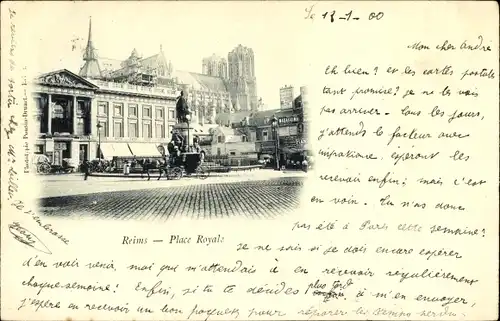 le 13-1-00
Mon cher Andre
Eh bien? et les cartes postales
tant promise? je ne les vois
pas arriver. Tous les jours,
j'attends le facteur avec
impatience, espérant les
recevoir enfin; mais c'est
en vain. Tu n'as donc
pas été à Paris cette semaine?
Je ne sais si je dois encore espérer
d'en voir venir, moi qui m'attendais à en recevoir régulièrement
chaque semaine! Enfin, si tu te décides plus tard à m'en envoyer,
j'espère en recevoir un bon poquet pour réparer le temps perdu.
Reims — Place Royale
MAGASINS
Je t'embrasse